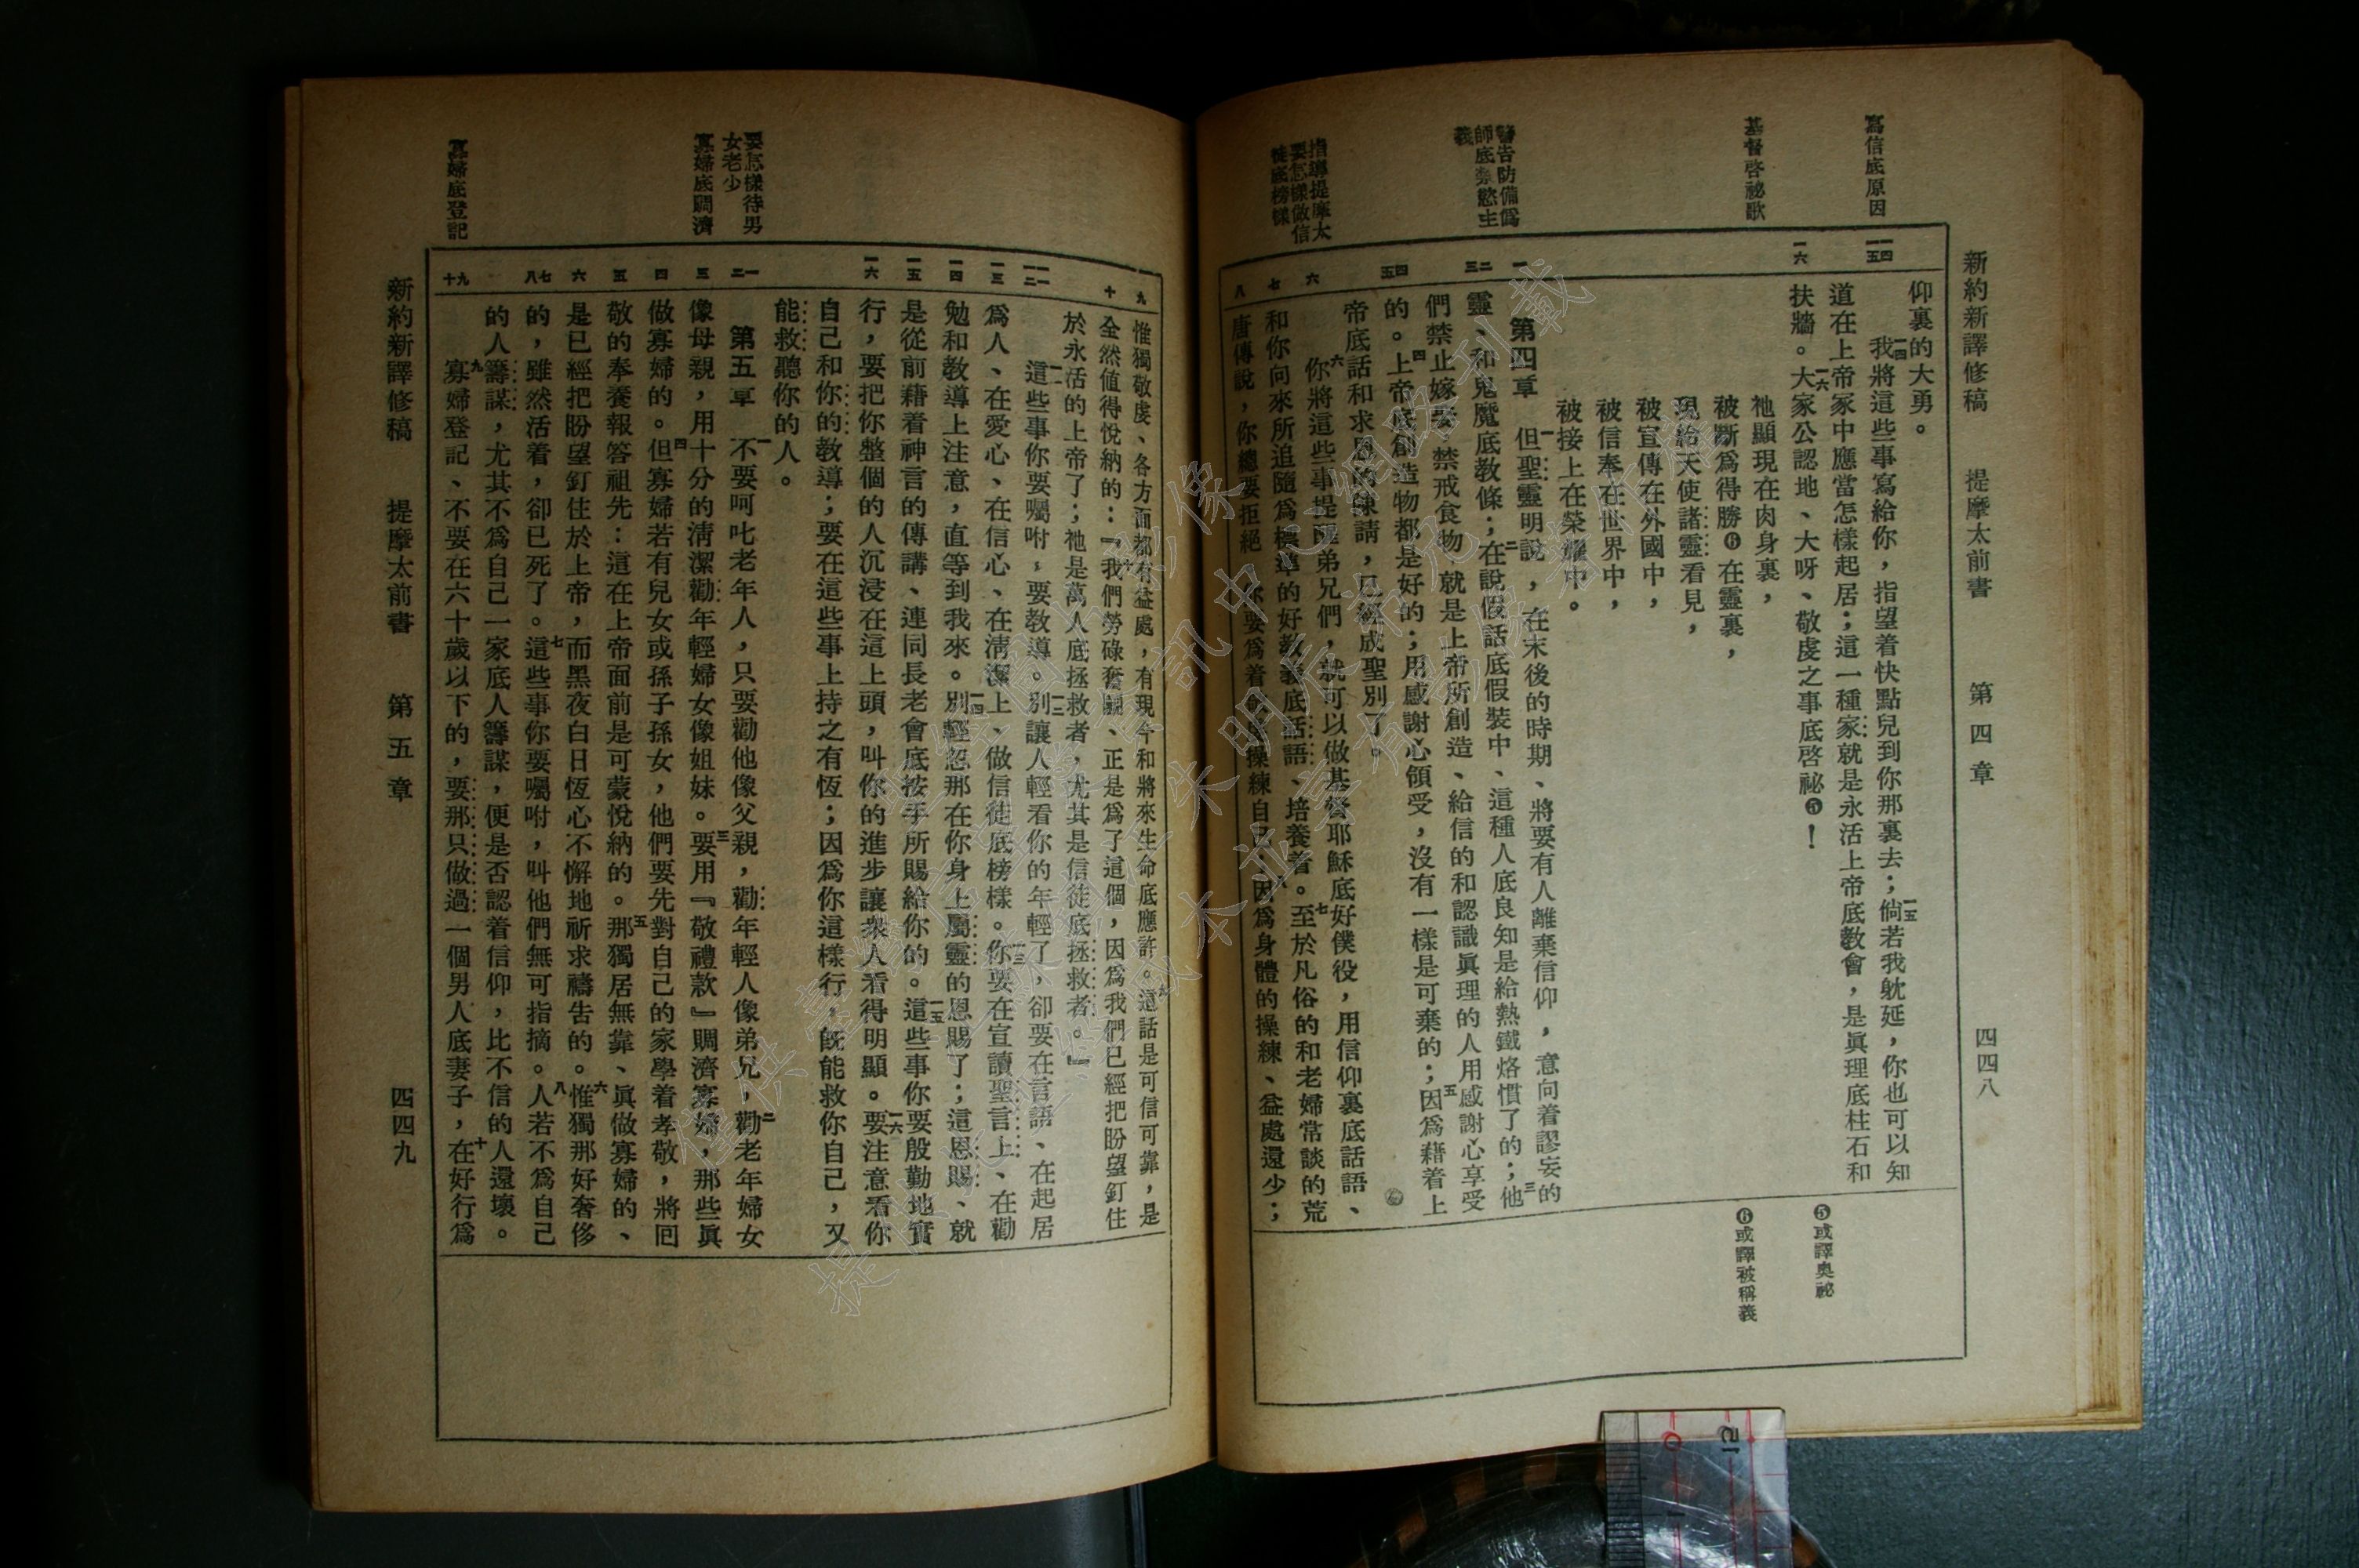 新約新譯修稿　提摩太前書　第四章　四四八
寫信底原因
基督啓祕歌
警告防備僞
師底禁慾主
義
指導提摩太
要怎樣做信
徒底榜樣
一四
一五
一六
一
二
三
四
五
六
七
八
仰裏的大勇。
一四我將這些事寫給你，指望着快點兒到你那裏去；一五倘若我躭延，你也可以知
道在上帝家中應當怎樣起居；這一種家就是永活上帝底教會，是眞理底柱石和
扶牆。一六大家公認地、大呀、敬虔之事底啓祕❺！
祂顯現在肉身裏，
被斷爲得勝❻在靈裏，
現給天使諸靈看見，
被宣傳在外國中，
被信奉在世界中，
被接上在榮耀中。
第四章　一但聖靈明說，在末後的時期、將要有人離棄信仰，意向着謬妄的
靈、和鬼魔底教條；二在說假話底假裝中、這種人底良知是給熱鐵烙慣了的；三他
們禁止嫁娶，禁戒食物，就是上帝所創造、給信的和認識眞理的人用感謝心享受
的。四上帝底創造物都是好的；用感謝心領受，沒有一樣是可棄的；五因爲藉着上
帝底話和求恩的懇請，已經成聖別了。
六你將這些事提醒弟兄們，就可以做基督耶穌底好僕役，用信仰裏底話語、
和你向來所追隨爲標準的好教義底話語、培養着。七至於凡俗的和老婦常談的荒
唐傳說，你總要拒絕，你要爲着敬虔操練自己。八因爲身體的操練、益處還少；
❺或譯奧祕
❻或譯被稱義
要怎樣待男
女老少
寡婦底賙濟
寡婦底登記
九
十
一一
一二
一三
一四
一五
一六
一
二
三
四
五
六
七
八
九
十
惟獨敬虔、各方面都有益處，有現今和將來生命底應許。九這話是可信可靠，是
全然值得悅納的：『十我們勞碌奮鬭、正是爲了這個，因爲我們已經把盼望釘住
於永活的上帝了；祂是萬人底拯救者，尤其是信徒底拯救者。』
一一這些事你要囑咐，要教導。一二別讓人輕看你的年輕了，卻要在言語、在起居
爲人、在愛心、在信心、在清潔上、做信徒底榜樣。一三你要在宣讀聖言上、在勸
勉和教導上注意，直等到我來。一四別輕忽那在你身上屬靈的恩賜了；這恩賜、就
是從前藉着神言的傳講、連同長老會底按手所賜給你的。一五這些事你要殷勤地實
行，要把你整個的人沉浸在這上頭，叫你的進步讓衆人看得明顯。一六要注意看你
自己和你的教導；要在這些事上持之有恆；因爲你這樣行，旣能救你自己，又
能救聽你的人。
第五章　一不要呵叱老年人，只要勸他像父親，勸年輕人像弟兄，二勸老年婦女
像母親，用十分的清潔勸年輕婦女像姐妹。三要用『敬禮款』賙濟寡婦，那些眞
做寡婦的。四但寡婦若有兒女或孫子孫女，他們要先對自己的家學着孝敬，將囘
敬的奉養報答祖先：這在上帝面前是可蒙悅納的。五那獨居無靠、眞做寡婦的、
是已經把盼望釘住於上帝，而黑夜白日恆心不懈地祈求禱告的。六惟獨那好奢侈
的，雖然活着，卻已死了。七這些事你要囑咐，叫他們無可指摘。八人若不爲自己
的人籌謀，尤其不爲自己一家底人籌謀，便是否認着信仰，比不信的人還壞。
九寡婦登記、不要在六十歲以下的，要那只做過一個男人底妻子，十在好行爲
新約新譯修稿　提摩太前書　第五章　四四九